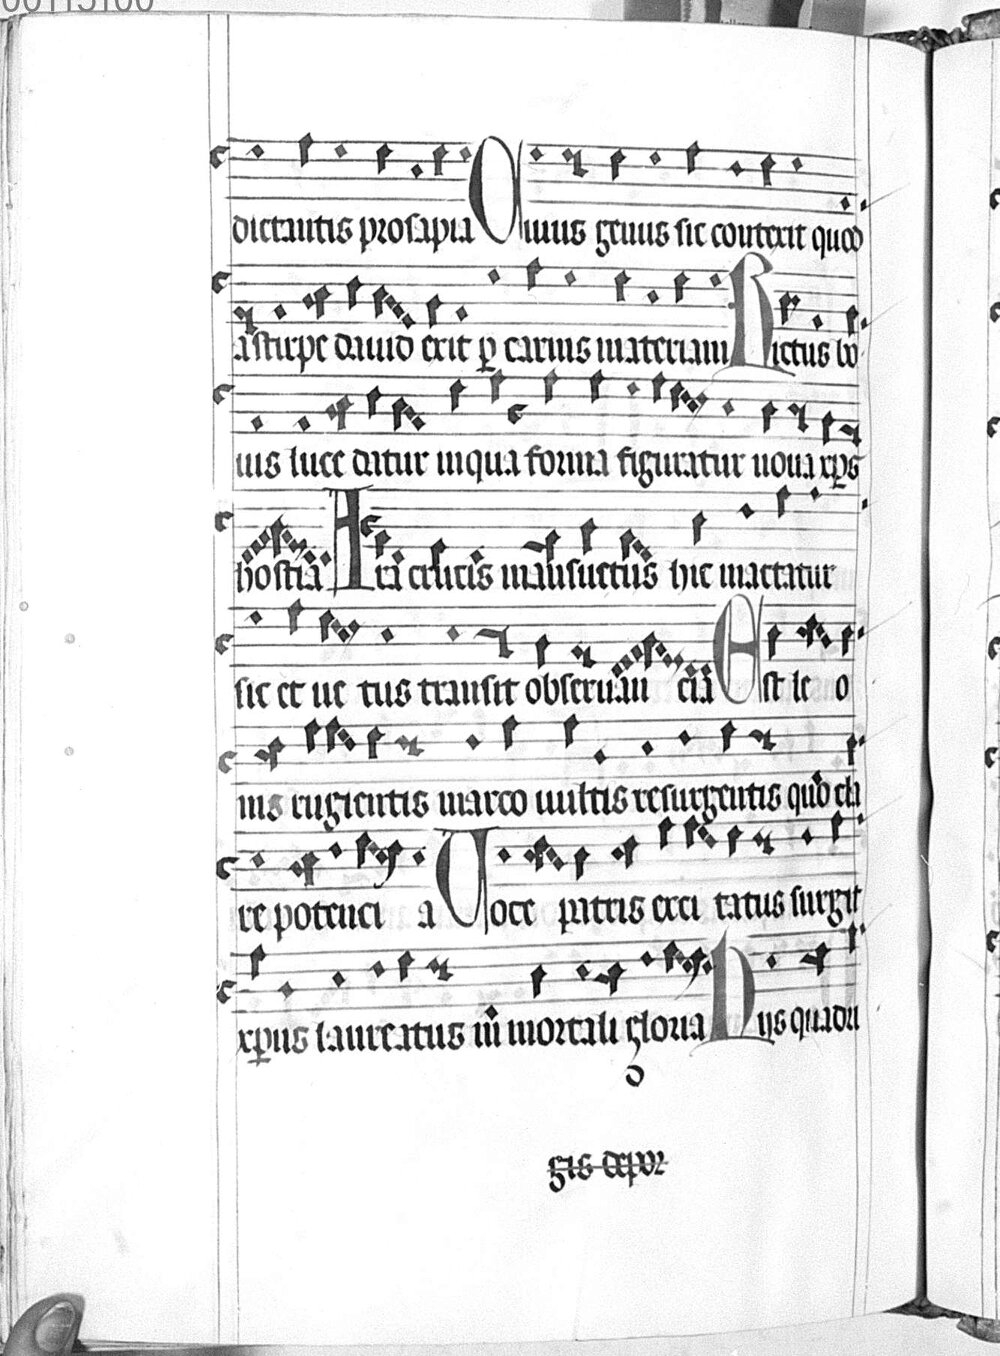 dictantis prosapia Cuius genus sic contexit quod
a stirpe dauid exit p carnis materiam Rictus bo
uis luce datur inqua forma figuratur noua xps
hostia Ara crucis mansuetus hic mactatur
sic et ue tus transit obseruan cia Est le o
nis rugientis marco uultis resurgentis quo cla
re potenci a Uoce patris exci tatus surgit
xpus laureatus in mortali gloria Hijs quadri
gis depor